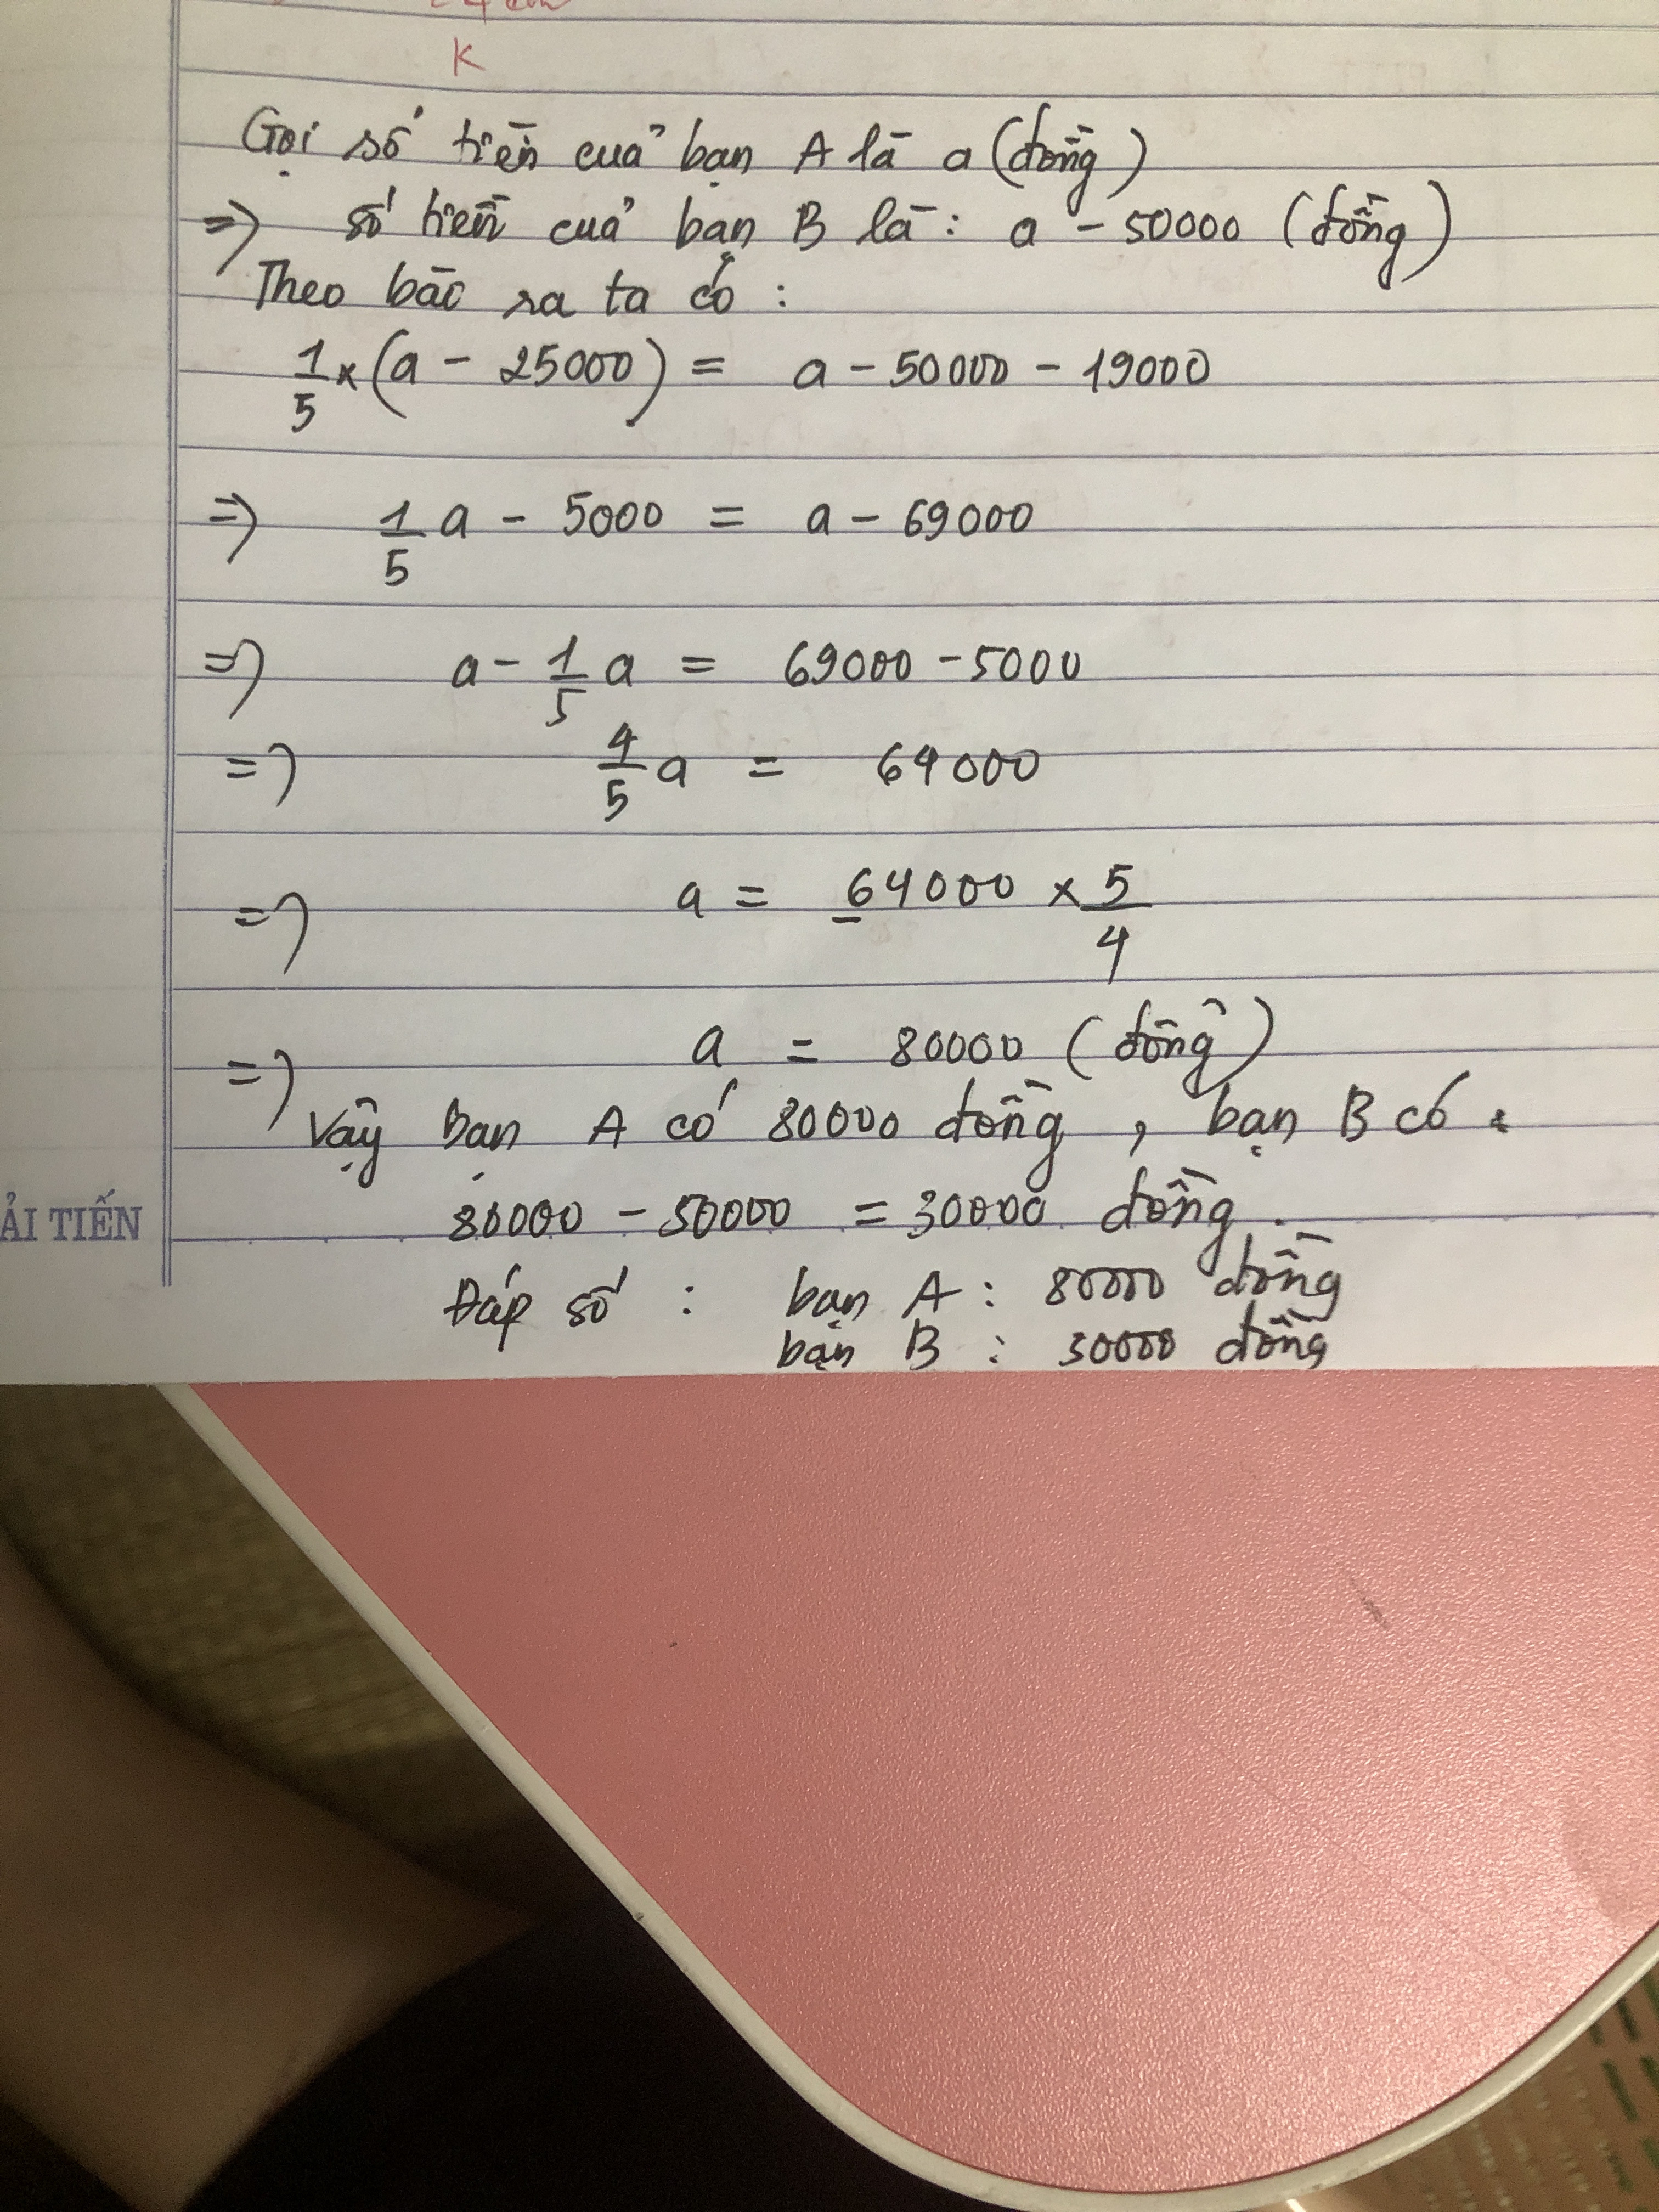 K
Gọi số tiền của bạn A là a (đồng)
=> số tiền của bạn B là : a - 50000 (đồng)
Theo bào ra ta có :
1/5 x (a - 25000) = a - 50000 - 19000
=> 1/5 a - 5000 = a - 69000
=> a - 1/5 a = 69000 - 5000
=> 4/5 a = 64000
=> a = 64000 x 5/4
=> a = 80000 (đồng)
Vậy bạn A có 80000 đồng , bạn B có :
80000 - 50000 = 30000 đồng .
Đáp số : bạn A : 80000 đồng
bạn B : 30000 đồng
ẢI TIẾN